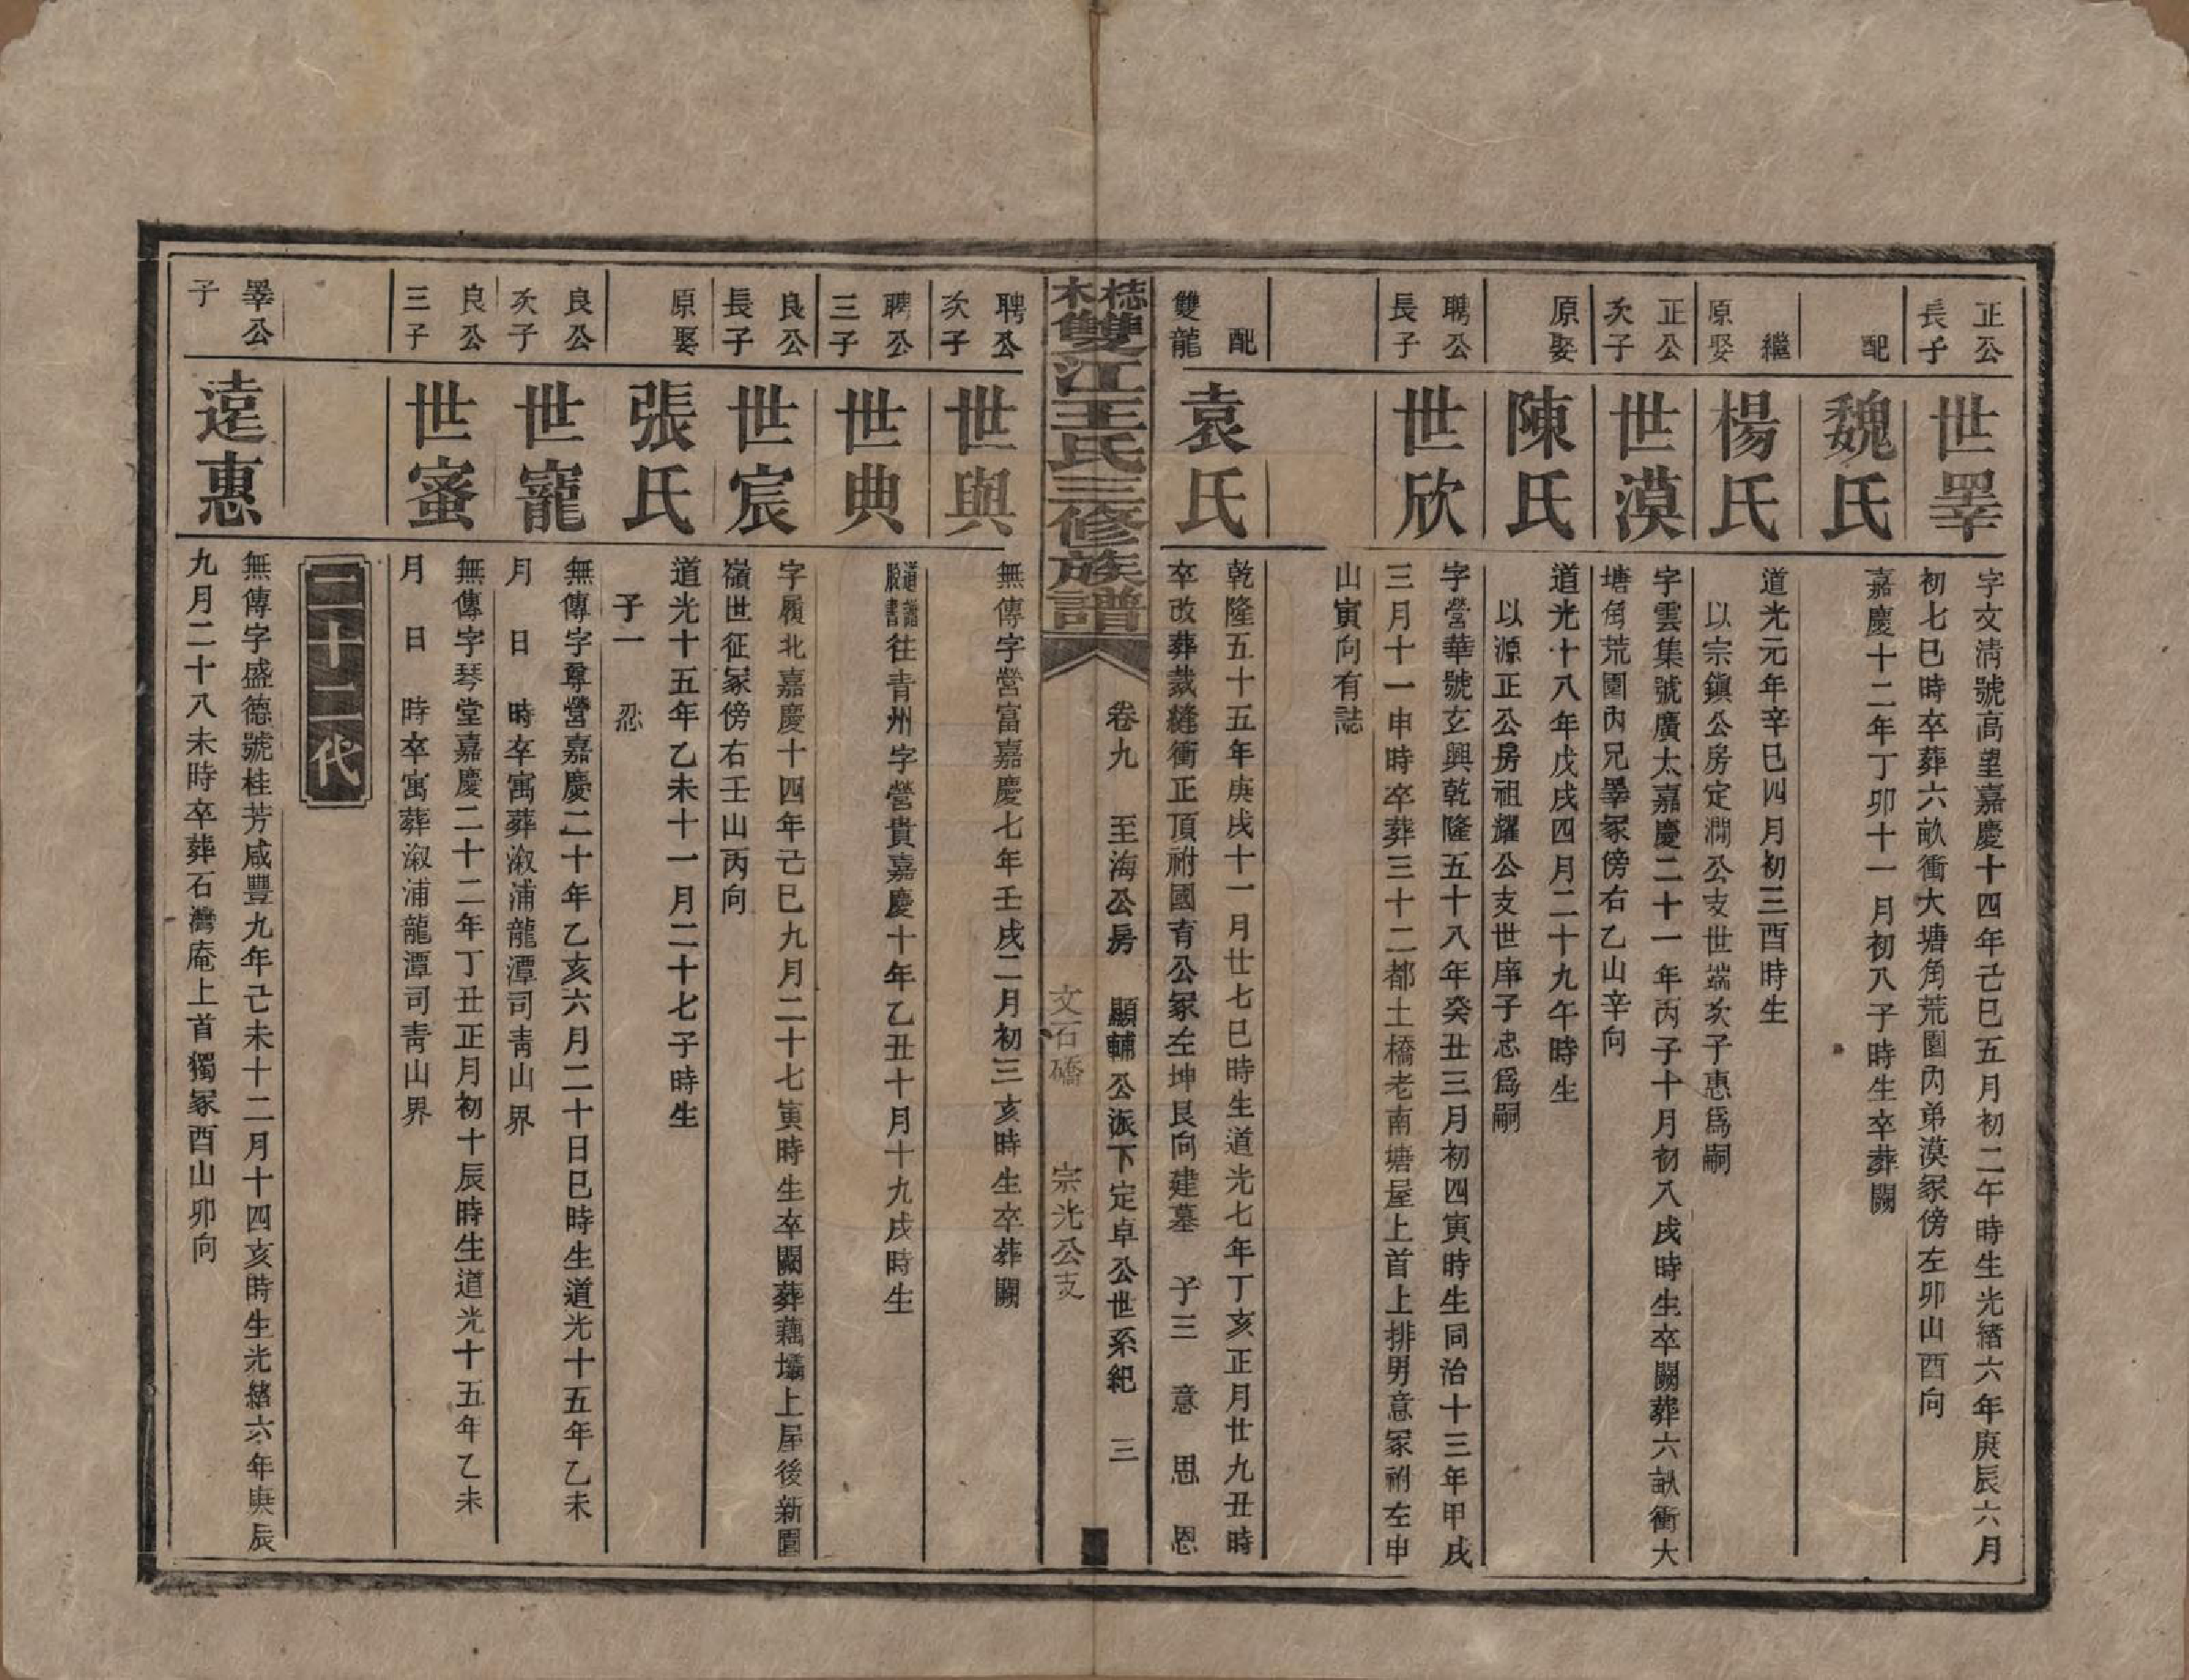 正公
長子
世睪
字文淸號高望嘉慶十四年己巳五月初二午時生光緒六年庚辰六月
初七巳時卒葬六畝衝大塘角荒園內弟漠冢傍左卯山酉向
配
魏氏
嘉慶十二年丁卯十一月初八子時生卒葬闕
繼
原娶
楊氏
道光元年辛巳四月初三酉時生
以宗鎭公房定澗公支世端次子惠爲嗣
正公
次子
世漠
字雲集號廣太嘉慶二十一年丙子十月初八戌時生卒闕葬六畝衝大
塘角荒園內兄睪冢傍右乙山辛向
原娶
陳氏
道光十八年戊戌四月二十九午時生
以源正公房祖耀公支世庠子忠爲嗣
聘公
長子
世欣
字營華號玄興乾隆五十八年癸丑三月初四寅時生同治十三年甲戌
三月十一申時卒葬三十二都土橋老南塘屋上首上排男意冢祔左申
山寅向有誌
配
雙龍
袁氏
乾隆五十五年庚戌十一月廿七巳時生道光七年丁亥正月廿九丑時
卒改葬裁縫衝正頂祔國育公冢左坤艮向建墓 子三 意 思 恩
梽木雙江王氏三修族譜
卷九 至海公房 顯輔公派下定卓公世系紀 三
文石礄 宗光公支
聘公
次子
世與
無傳字營富嘉慶七年壬戌二月初三亥時生卒葬闕
聘公
三子
世典
往青州字營貴嘉慶十年乙丑十月十九戌時生
良公
長子
世宸
字履北嘉慶十四年己巳九月二十七寅時生卒闕葬藕壩上屋後新園
嶺世征冢傍右壬山丙向
原娶
張氏
道光十五年乙未十一月二十七子時生
子一 忍
良公
次子
世寵
無傳字尊營嘉慶二十年乙亥六月二十日巳時生道光十五年乙未
月 日 時卒寓葬溆浦龍潭司靑山界
良公
三子
世蜜
無傳字琴堂嘉慶二十二年丁丑正月初十辰時生道光十五年乙未
月 日 時卒寓葬溆浦龍潭司靑山界
二十二代
睪公
子
遠惠
無傳字盛德號桂芳咸豐九年己未十二月十四亥時生光緒六年庚辰
九月二十八未時卒葬石灣庵上首獨冢酉山卯向